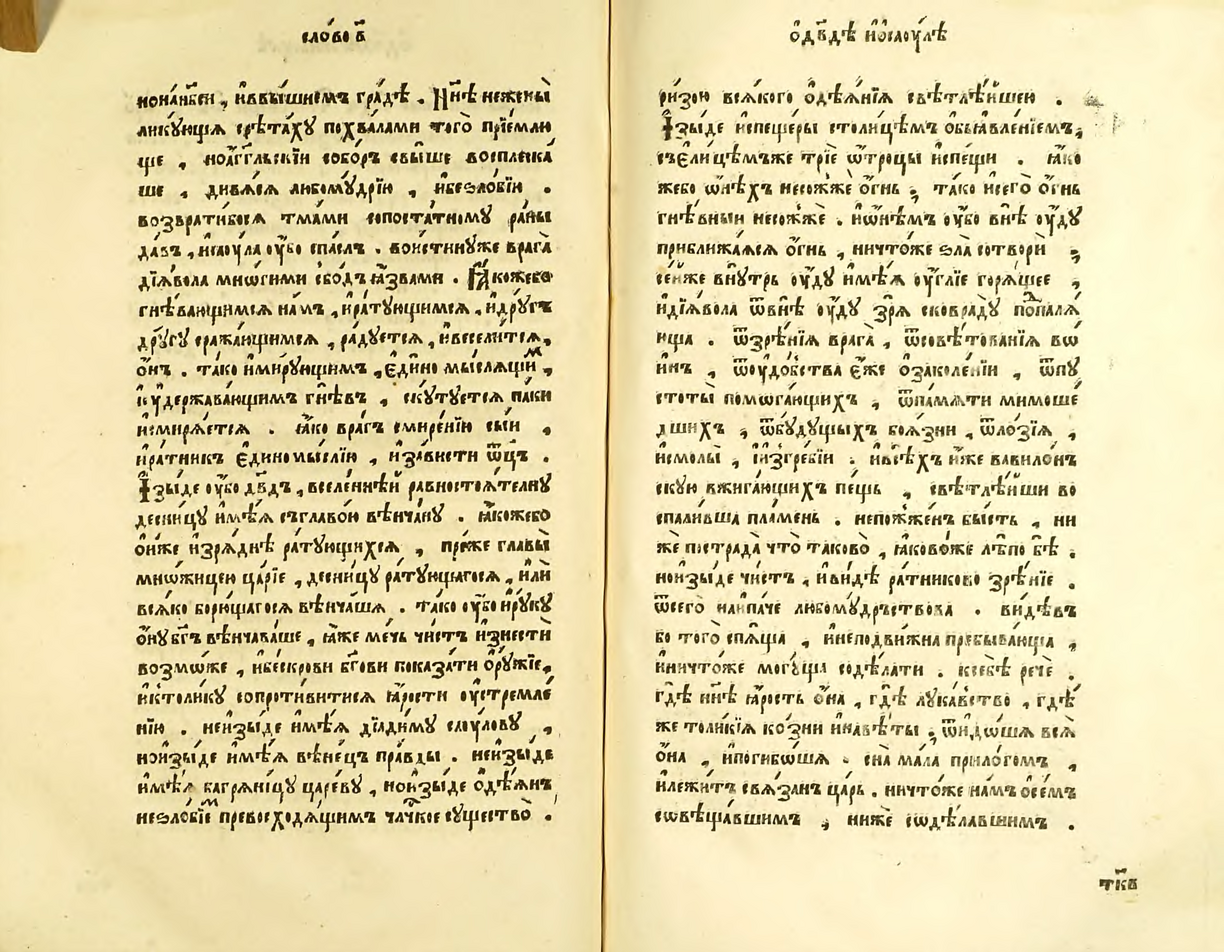 сло́во в҃
нона́нб҃си , и҆ввы́шнемъ гра́дѣ . Нн҃ѣ нежены̀
лику́ющїѧ срѣта́хꙋ похвала́ми того̀ прїемлю
ще , ноа҆́гг҃льскїи собо́ръ свы́ше восплеска́
ше , дивѧ́сѧ любомꙋ́дрїю , и҆беꙁло́бїю .
возврати́босѧ тма́ми сопоста́тномꙋ ра́ны
да́въ , и҆саоу́ла ᲂу҆́бо спа́слъ . вои́стинꙋже врага̀
дїѧ́вола мно́гими сбо́дъ ꙗ҆́звами . Ꙗ҆́кожебо
гнѣ́вающимсѧ на́мъ , и҆ра́тꙋющимсѧ , и҆дрꙋ́гъ
дрꙋ́гꙋ сража́ющимсѧ , ра́дꙋетсѧ , и҆весели́тсѧ ,
ѻ҆́нъ . та́ко и҆ми́рꙋющимъ , є҆ди́но мы́слѧщимъ ,
и҆ᲂу҆держава́ющимъ гнѣ́въ , скꙋ́тꙋетсѧ па́ки
и҆смирѧ́етсѧ . ꙗ҆́ко вра́гъ смире́нїю сы́и ,
и҆ра́тникъ є҆диномы́слїю , и҆за́висти ѻ҆ц҃ъ .
І҆зы́де ᲂу҆́бо дв҃дъ , вселе́ннѣи равностоѧ́телнꙋ
десни́цꙋ и҆мѣ́ѧ съглаво́ю вѣнча́нꙋ . ꙗ҆́кожебо
ѻ҆ни́же и҆зрѧ́днѣ ра́тꙋющихсѧ , пре́же главы̀
мно́жицею ца́рїе , десни́цꙋ ра́тꙋющагосѧ , и҆лѝ
всѧ́ко бо́рющагосѧ вѣнча́шѧ . та́ко ᲂу҆́бо и҆рꙋ́кꙋ
ѻ҆́нꙋ бг҃ъ вѣнчава́ше , ꙗ҆́же ме́чь чи́стъ и҆знестѝ
возмо́же , и҆бескро́ви бг҃ови показа́ти ѻ҆рꙋ́жїе ,
и҆кто́ликꙋ сопроти́витисѧ ꙗ҆́рости ᲂу҆стремле́
нїю . неи҆зы́де и҆мѣ́ѧ дїади́мꙋ саоу́ловꙋ ,
нои҆зы́де и҆мѣ́ѧ вѣне́цъ пра́вды . неи҆зы́де
и҆мѣ́ѧ багрѧни́цꙋ ца́ревꙋ , нои҆зы́де ѻ҆дѣ́ѧнъ
неꙁло́бїемъ превосходѧ́щимъ чл҃чкое сꙋщество̀ .
ѻ҆дв҃дѣ и҆ѻ҆саоу́лѣ
ри́зою всѧ́кого ѻ҆дѣѧ́нїѧ свѣтлѣ́ишею .
І҆зы́де и҆спеще́ры столи́цѣмъ ѻ҆бьѧвле́нїемъ ,
съели́цѣмъже трїѐ ѿтроцы и҆спещи . ꙗ҆́ко
жебо ѡ҆нѣ́хъ несожжѐ ѻ҆́гнь , та́ко и҆сего̀ ѻ҆́гнь
гнѣ́вныи несожжѐ . и҆ѡ҆нѣ́мъ ᲂу҆́бо внѣ̀ ᲂу҆́дꙋ
приближа́ѧсѧ ѻ҆́гнь , ничто́же ꙁла̀ сотворѝ ,
се́иже внꙋ́трь ᲂу҆́дꙋ и҆мѣ́ѧ ᲂу҆́глїе горѧ́щее ,
и҆дїѧ́вола ѿвнѣ̀ ᲂу҆́дꙋ зрѧ̀ сковрадꙋ̀ попалѧ́
юща . ѿзрѣ́нїѧ врага̀ , ѿсовѣ́тованїѧ во́
инъ , ѿᲂу҆до́бства є҆́же ѻ҆заколе́нїи , ѿпꙋ
стоты̀ помога́ющихъ , ѿпа́мѧти мимоше́
дшихъ , ѿбꙋ́дꙋщыхъ боѧ́зни , ѿло́зїѧ ,
и҆смолы̀ , и҆и҆згре́бїи . и҆всѣ́хъ и҆́же вавило́нъ
скꙋю вжига́ющихъ пе́щь , свѣтлѣ́иши во
спали́вша пла́мень . непожже́нъ бы́сть , ни
же пострада̀ что̀ таково̀ , ꙗ҆ково́же лѣ́по бѣ̀ .
нои҆зы́де чи́стъ , и҆ви́дѣ ра́тниково зрѣ́нїе .
ѿсего̀ наипа́че любомꙋ́дръствова . ви́дѣвъ
бо того̀ спѧ́ща , и҆неподви́жна пребыва́юща ,
и҆ничто́же могꙋ́ща содѣ́лати . ксебѣ̀ речѐ .
гдѣ̀ нн҃ѣ ꙗ҆́рость ѻ҆на̀ , гдѣ̀ лꙋка́вство , гдѣ́
же толи́кїѧ ко́зни и҆навѣ́ты , ѿидо́шѧ всѧ̀
ѻ҆на̀ , и҆погибо́шѧ . сна̀ ма́ла прило́гомъ ,
и҆лежи́тъ свѧ́занъ ца́рь . ничто́же на́мъ ѻ҆се́мъ
совѣща́вшимъ , ниже́ содѣ́лавшимъ .
тк҃в